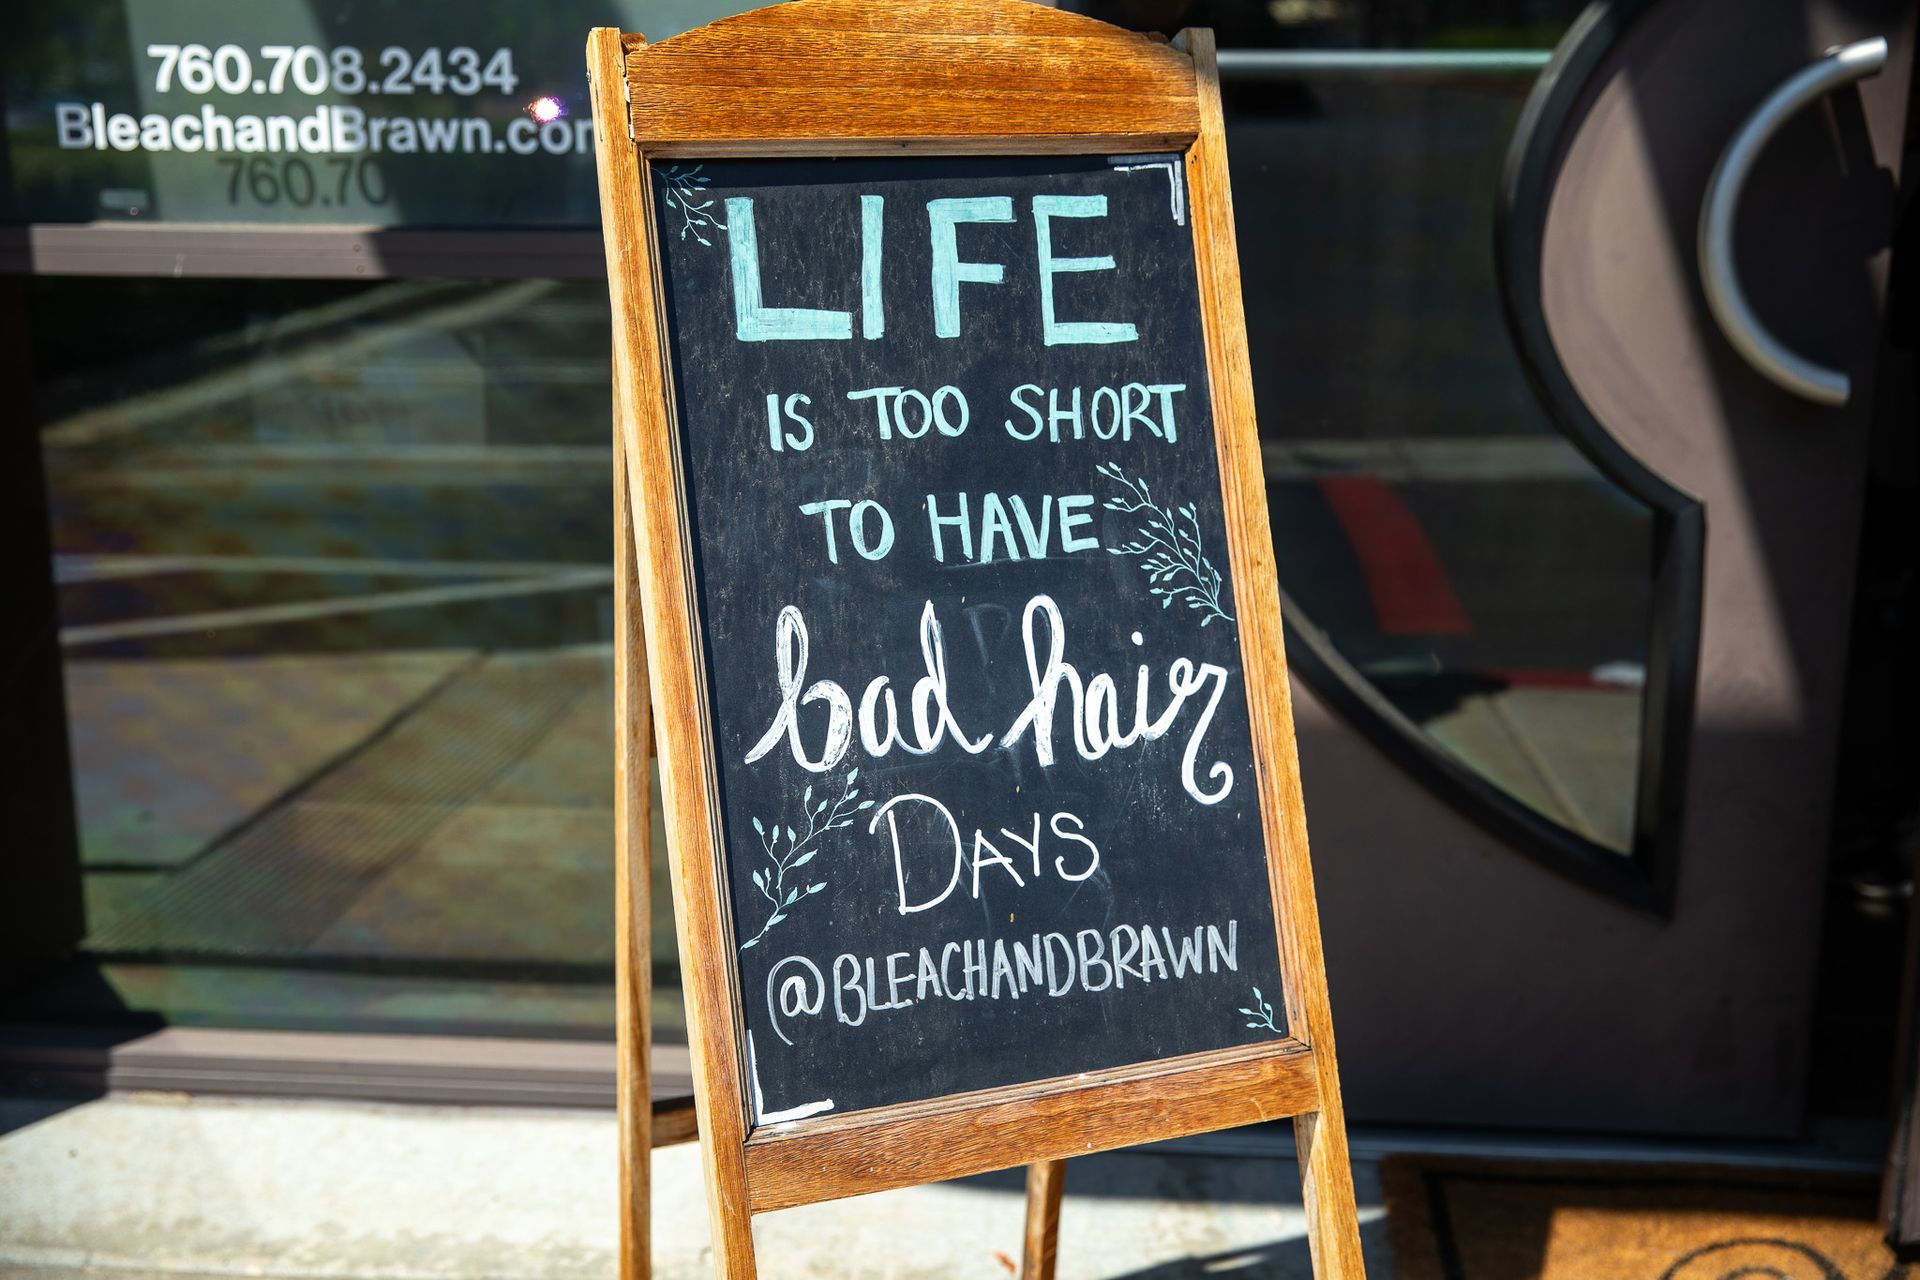 760.708.2434
BleachandBrawn.com
760.70
LIFE
IS TOO SHORT
TO HAVE
bad hair
DAYS
@BLEACHANDBRAWN